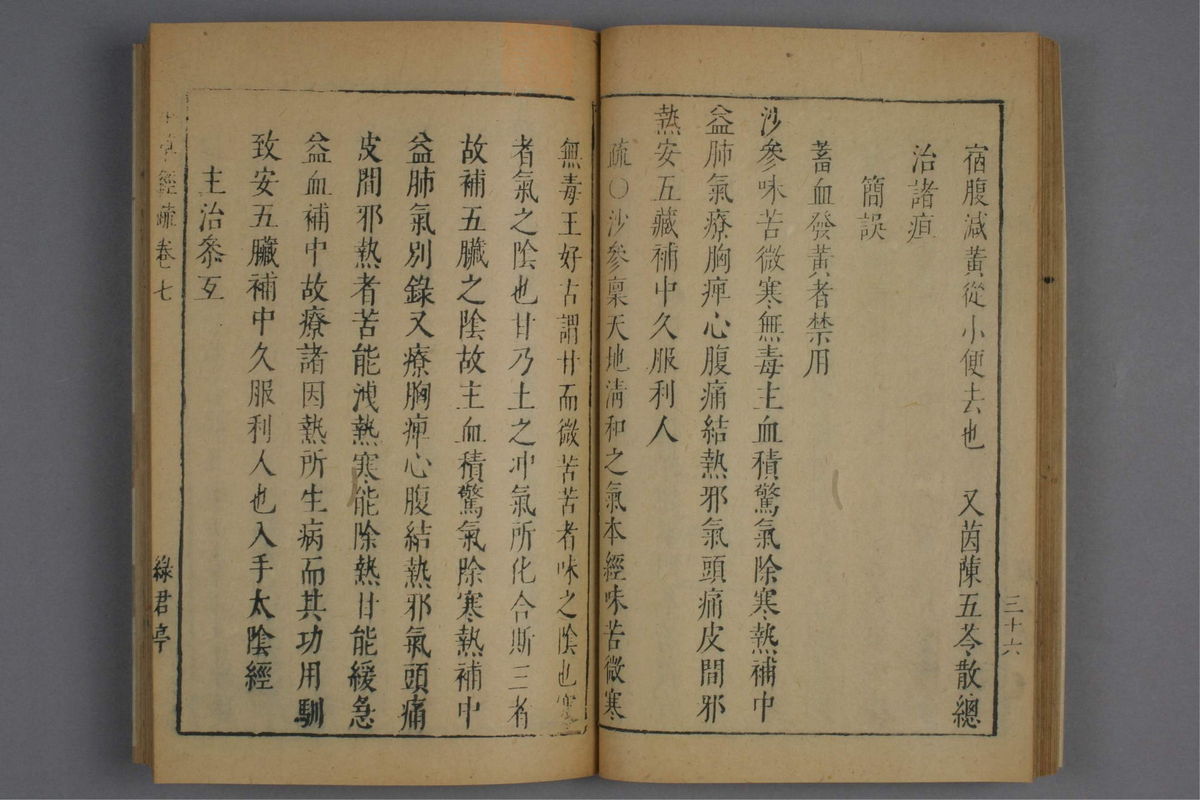 宿腹減黃從小便去也　又茵陳五苓散總
治諸疸
簡誤
蓄血發黃者禁用
沙參味苦微寒無毒主血積驚氣除寒熱補中
益肺氣療胸痺心腹痛結熱邪氣頭痛皮間邪
熱安五藏補中久服利人
疏〇沙參稟天地清和之氣本經味苦微寒
三十六
無毒王好古謂甘而微苦苦者味之陰也寒
者氣之陰也甘乃土之冲氣所化合斯三者
故補五臟之陰故主血積驚氣除寒熱補中
益肺氣別錄又療胸痺心腹結熱邪氣頭痛
皮間邪熱者苦能洩熱寒能除熱甘能緩急
益血補中故療諸因熱所生病而其功用馴
致安五臟補中久服利人也入手太陰經
主治叅互
草經疏卷七
綠君亭